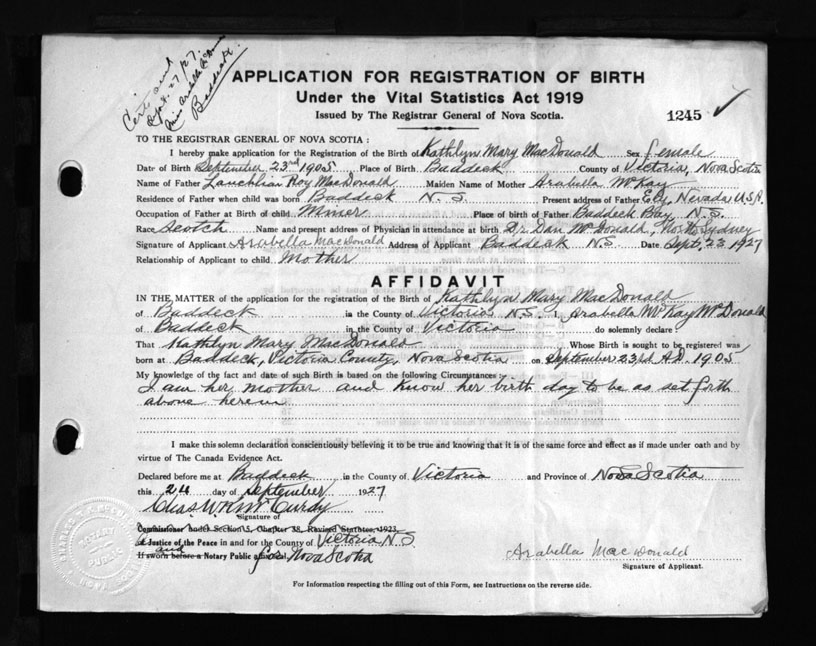 Cert. sent
Sept. 27/27.
Miss Arabella
Baddeck.
APPLICATION FOR REGISTRATION OF BIRTH
Under the Vital Statistics Act 1919
Issued by The Registrar General of Nova Scotia.
1245 ✓
TO THE REGISTRAR GENERAL OF NOVA SCOTIA:
I hereby make application for the Registration of the Birth of Kathlyn Mary MacDonald Sex female
Date of Birth September 23rd 1905 Place of Birth Baddeck County of Victoria, Nova Scotia
Name of Father Lauchlian Roy MacDonald Maiden Name of Mother Arabella McKay
Residence of Father when child was born Baddeck N. S. Present address of Father Ely, Nevada U.S.A.
Occupation of Father at Birth of child Miner Place of birth of Father Baddeck Bay, N. S.
Race Scotch Name and present address of Physician in attendance at birth Dr. Dan McDonald, North Sydney
Signature of Applicant Arabella MacDonald Address of Applicant Baddeck N.S. Date Sept. 23 1927
Relationship of Applicant to child Mother
AFFIDAVIT
IN THE MATTER of the application for the registration of the Birth of Kathlyn Mary MacDonald
of Baddeck in the County of Victoria N.S. I, Arabella McKay McDonald
of Baddeck in the County of Victoria do solemnly declare:
That Kathlyn Mary MacDonald Whose Birth is sought to be registered was
born at Baddeck, Victoria County, Nova Scotia on September 23rd A.D. 1905
My knowledge of the fact and date of such Birth is based on the following Circumstances:
I am her mother and know her birth day to be as set forth
above herein
I make this solemn declaration conscientiously believing it to be true and knowing that it is of the same force and effect as if made under oath and by
virtue of The Canada Evidence Act.
Declared before me at Baddeck in the County of Victoria and Province of Nova Scotia
this 24 day of September 1927
Chas WKMcCurdy
Signature of
Commissioner under Section 5, Chapter 38, Revised Statutes, 1923.
A Justice of the Peace in and for the County of Victoria N S
and
If sworn before a Notary Public affix seal. for Nova Scotia
Arabella MacDonald
Signature of Applicant.
For Information respecting the filling out of this Form, see Instructions on the reverse side.
NOTARY
PUBLIC